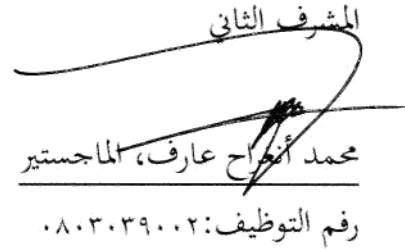 المشرف الثاني
محمد أنغراح عارف، الماجستير
رقم التوظيف: ٠٨٠٣٠٣٩٠٠٢